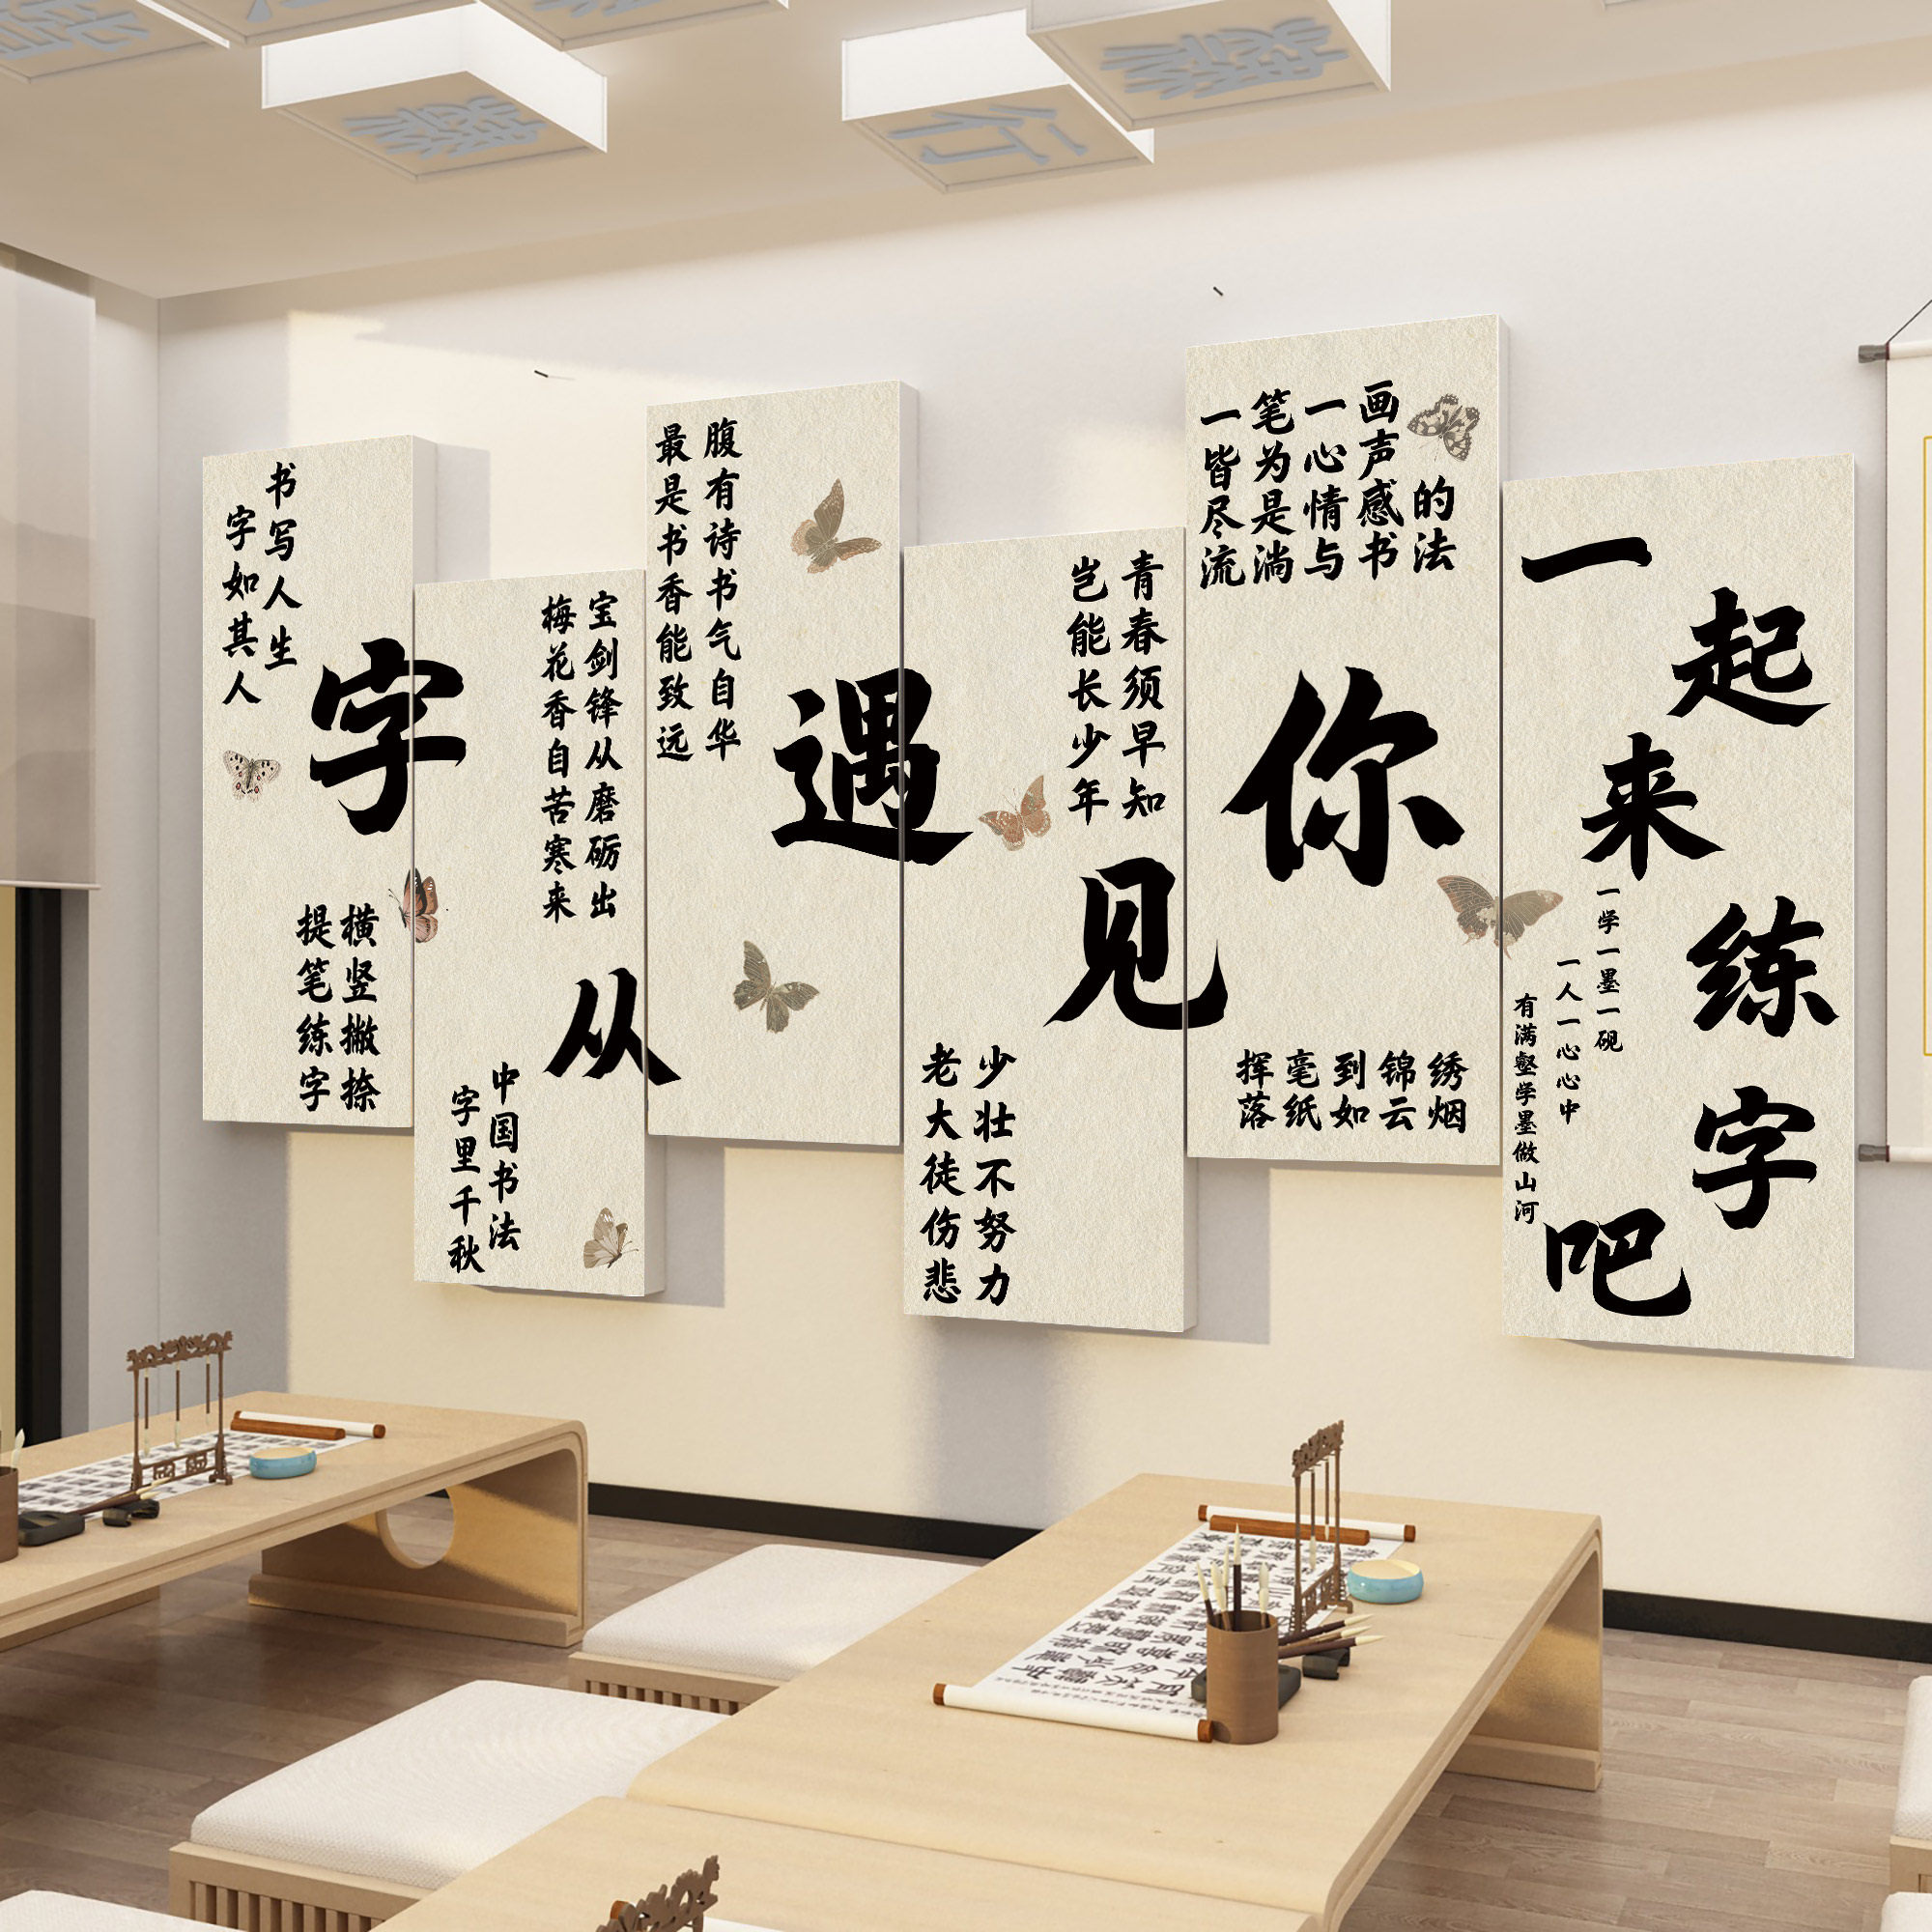 书写人生
字如其人
字从遇见你
横竖撇捺
提笔练字
宝剑锋从磨砺出
梅花香自苦寒来
中国书法
字里千秋
腹有诗书气自华
最是书香能致远
青春须早知
岂能长少年
少壮不努力
老大徒伤悲
一笔一画
皆为心声
尽是情感的
流淌与书法
挥毫到锦绣
落纸如云烟
一起来练字吧
一学一墨一砚
一人一心心中
有满壑学墨做山河